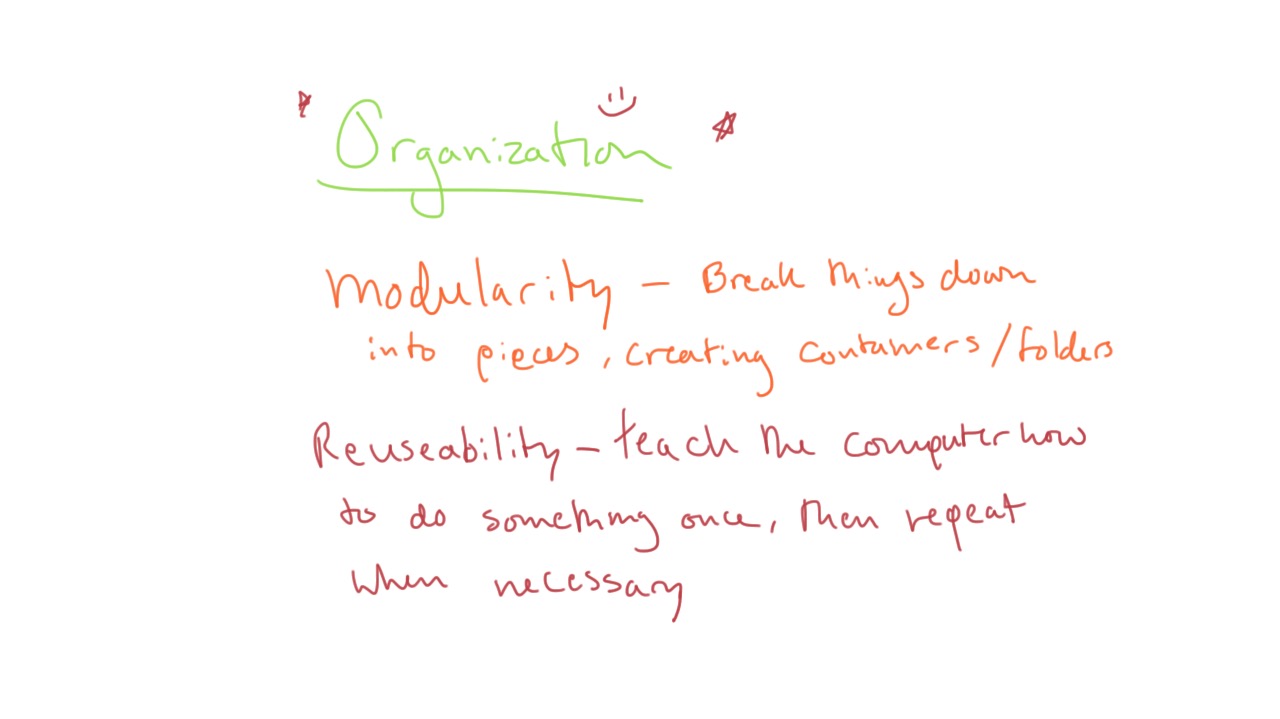 Organization
Modularity – Break things down
into pieces, creating containers/folders
Reuseability – teach the computer how
to do something once, then repeat
when necessary